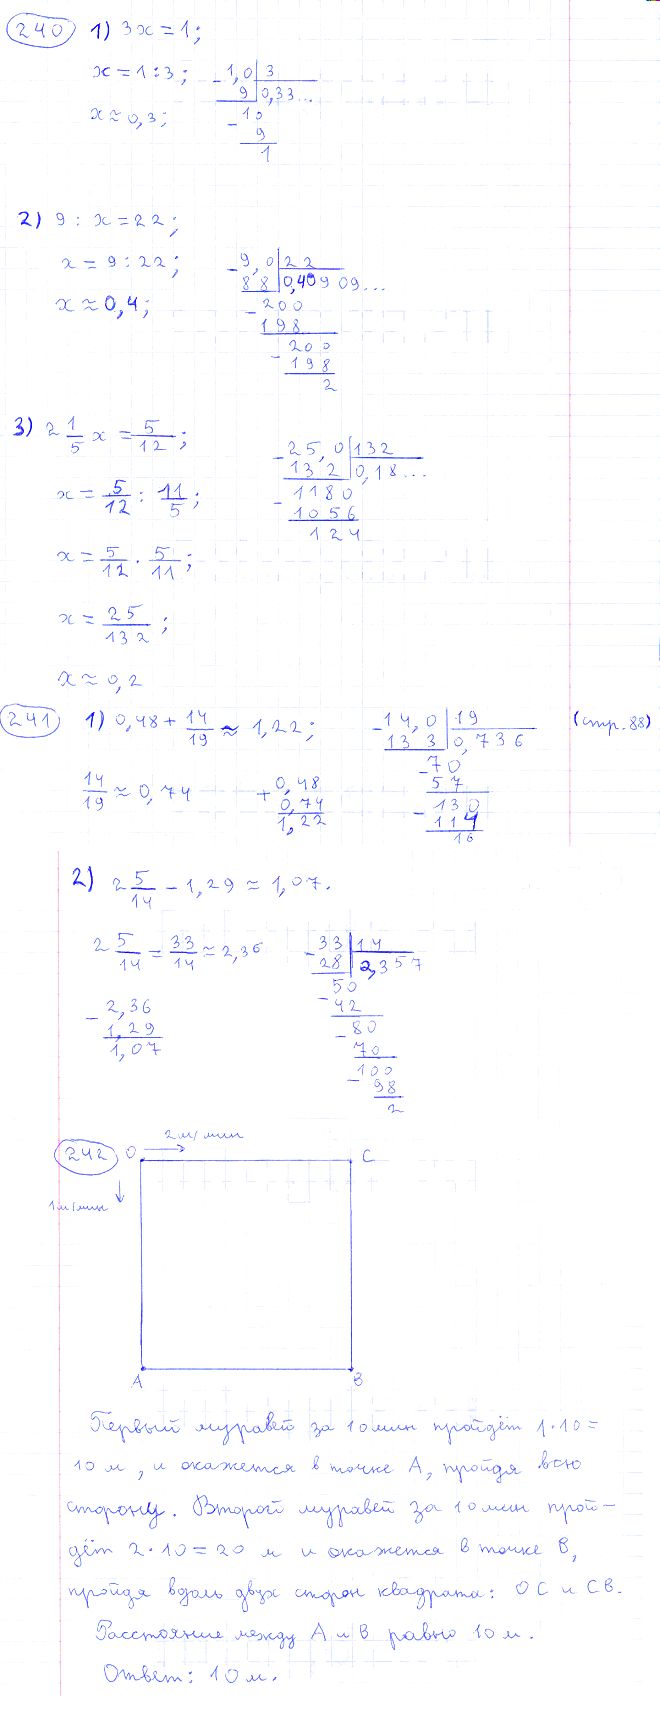 240 1) 3x = 1;
x = 1 : 3;
x ≈ 0,3;
- 1,0 | 3
9 | 0,33...
- 10
9
1
2) 9 : x = 22;
x = 9 : 22;
x ≈ 0,4;
- 9,0 | 22
88 | 0,40909...
- 200
198
- 200
198
2
3) 2 1/5 x = 5/12;
x = 5/12 : 11/5;
x = 5/12 · 5/11;
x = 25/132;
x ≈ 0,2
- 25,0 | 132
132 | 0,18...
- 1180
1056
124
241 1) 0,48 + 14/19 ≈ 1,22;
14/19 ≈ 0,74
+ 0,48
0,74
1,22
- 14,0 | 19
133 | 0,736
- 70
57
- 130
114
16
(стр. 88)
2) 2 5/14 - 1,29 ≈ 1,07.
2 5/14 = 33/14 ≈ 2,36
- 2,36
1,29
1,07
- 33 | 14
28 | 2,357
50
- 42
80
- 70
100
- 98
2
242
O 2м/мин C
1м/мин
A B
Первый муравей за 10 мин пройдёт 1·10=
10 м, и окажется в точке А, пройдя всю
сторону. Второй муравей за 10 мин прой-
дёт 2·10=20 м и окажется в точке В,
пройдя вдоль двух сторон квадрата: ОС и СВ.
Расстояние между А и В равно 10 м.
Ответ: 10 м.